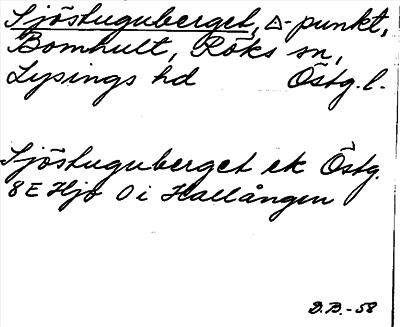 Sjöstuguberget, △-punkt,
Bomhult, Röks sn,
Lysings hd Östg.l.
Sjöstuguberget ek Östg.
8E Hjo 0i Hallången
D.B.-58